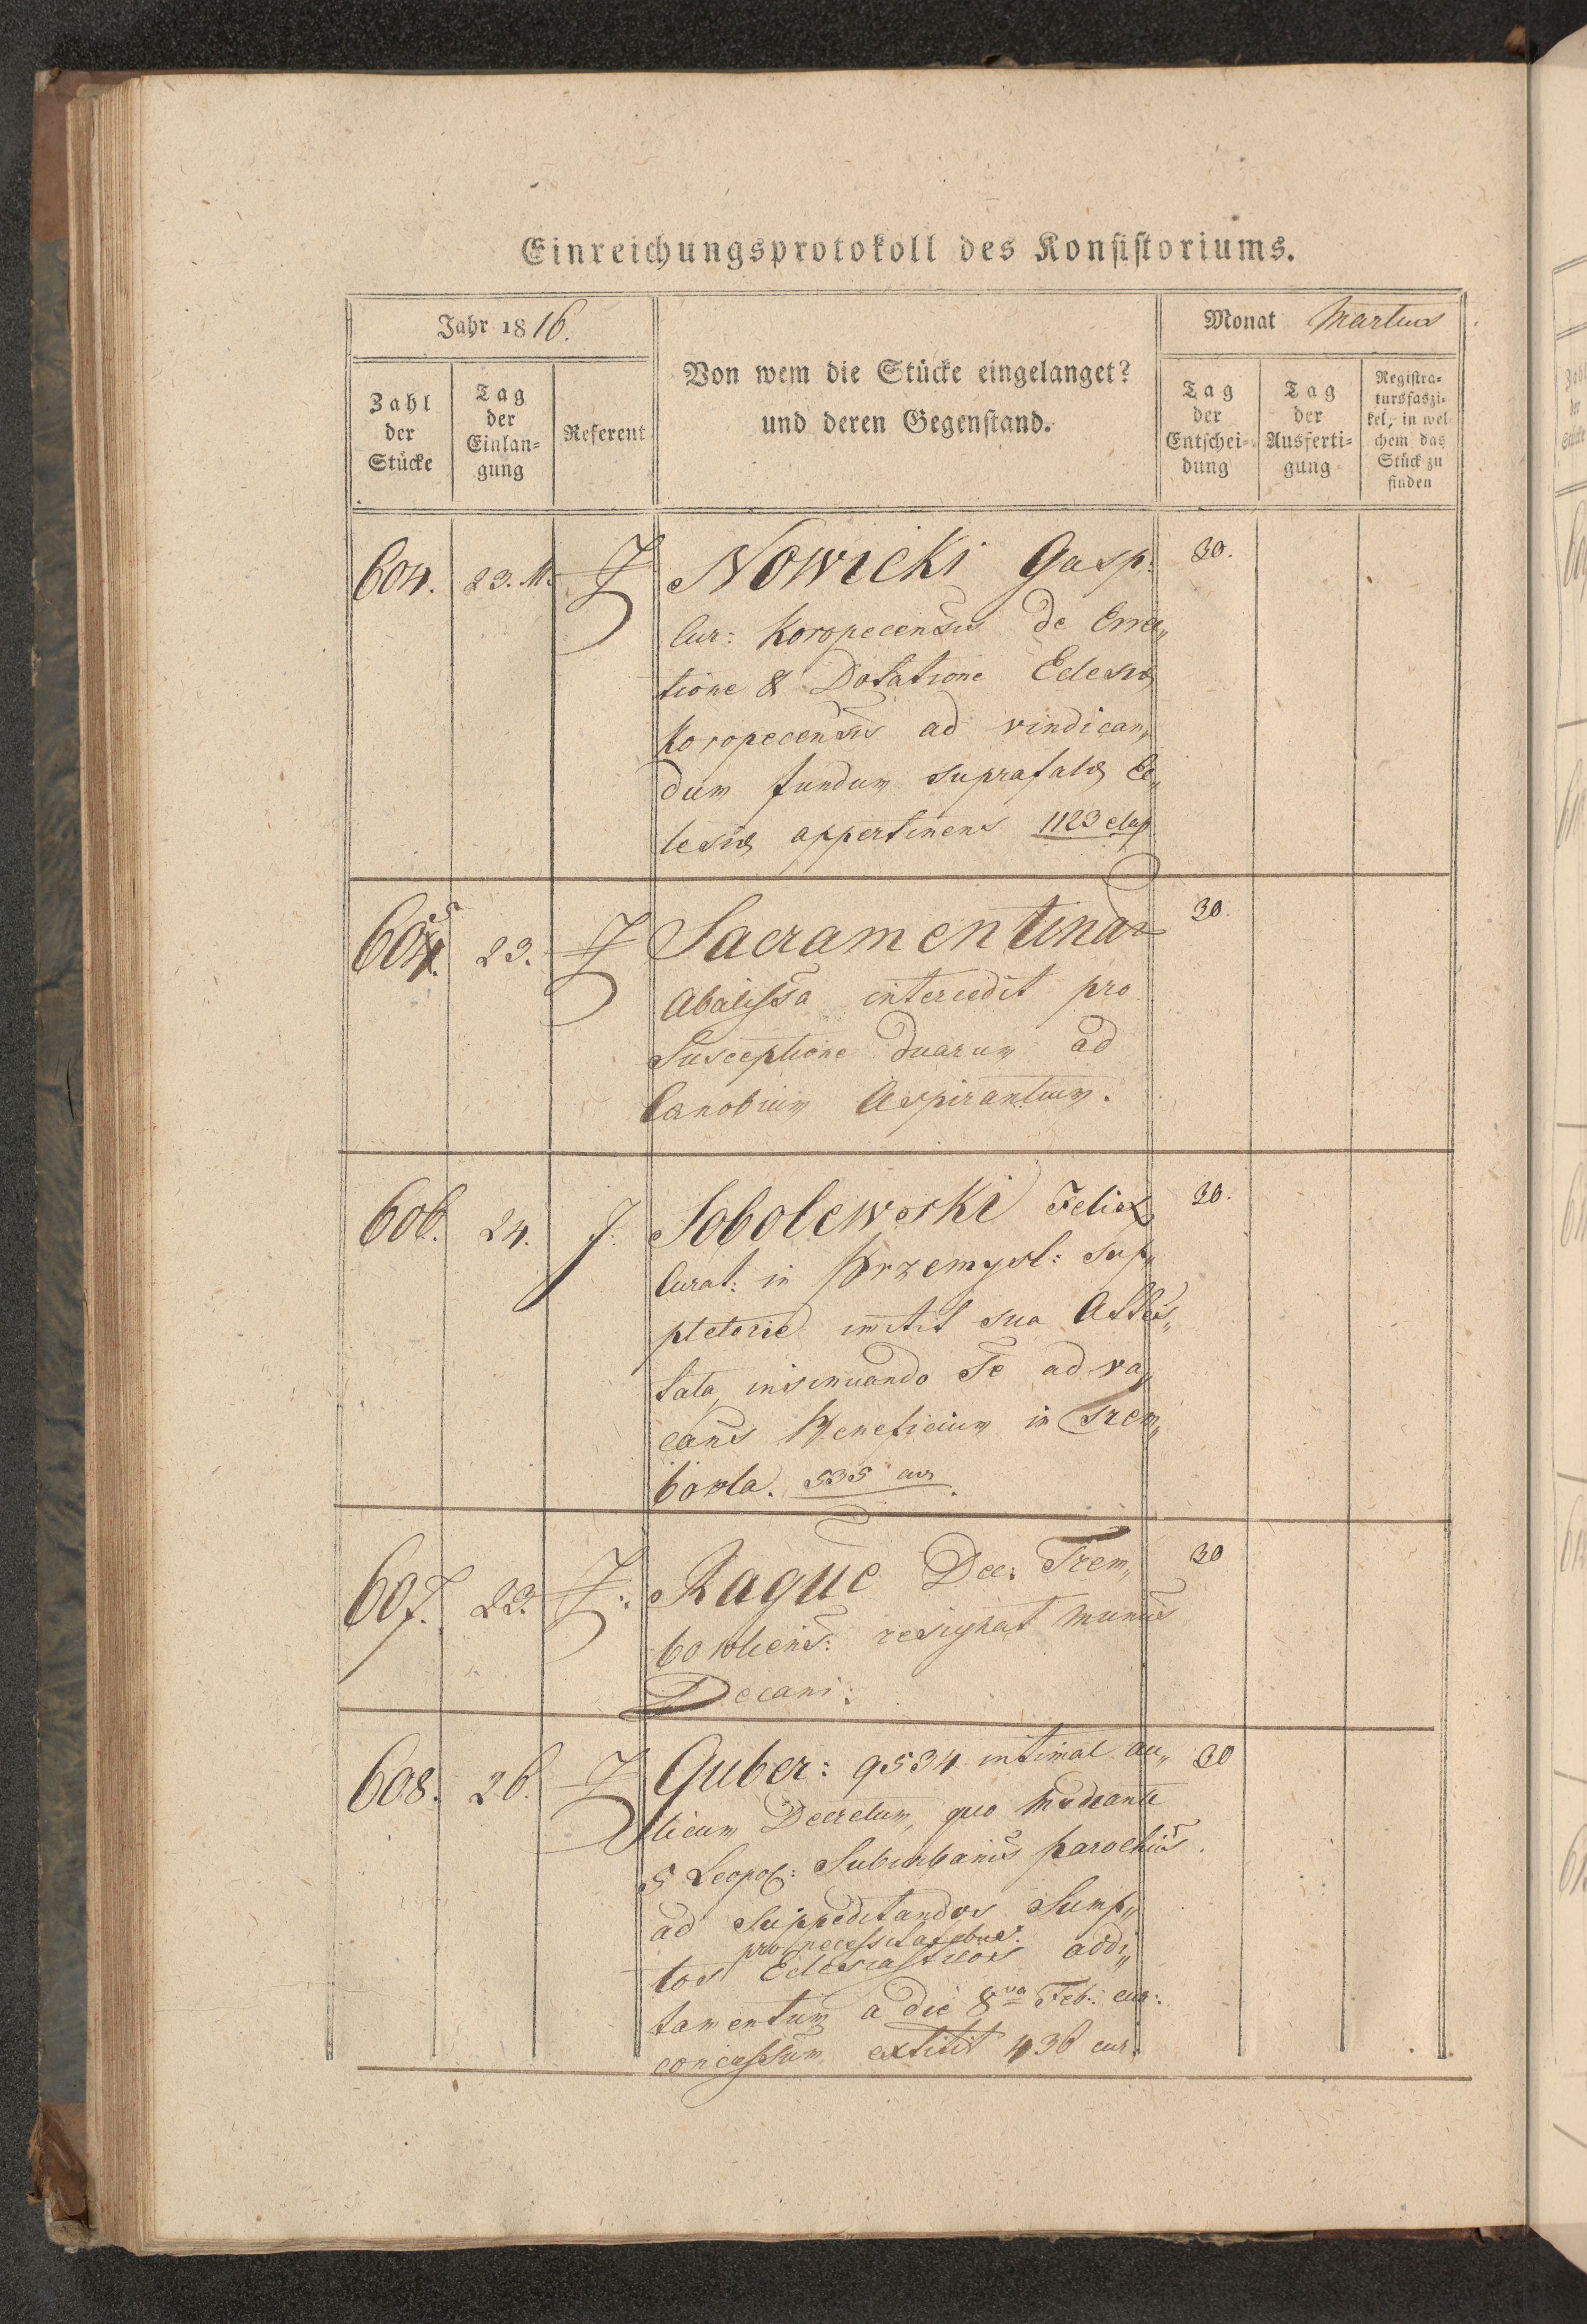 Einreichungsprotokoll des Konsistoriums.
Jahr 1816.
Monat Martius
Zahl der Stücke
Tag der Einlan= gung
Referent
Von wem die Stücke eingelanget?
und deren Gegenstand.
Tag der Entschei= dung
Tag der Ausferti= gung
Registra= tursfaszi= kel, in wel chem das Stück zu finden
604. 23. M. Nowicki Gasp: 30.
Cur: Koropecensis de Erec„
tione & Dotatione Eclesiæ
Koropecensis ad vindican„
dum fundum suprafatæ Ec„
lesiæ appertinens 1123 elap
605. 23. Sacramentinar 30.
Abatissa intercedit pro
Susceptione duarum ad
Cænobium Aspirantium.
606. 24. J. Sobolewski Felix 30.
Curat: in Przemysl: sup„
pletorie mittit sua Attes„
tata, insinuando Se ad va„
cans Beneficium in Trem„
bowla. 535 cur.
607. 23. Rague Dec: Trem„ 30
bowliens: resignat munus
Decani.
608. 26. Guber: 9534 intimat au„ 30
licum Decretum, quo mediante
5 Leopol: Suburbanis parochiis
ad Suppeditandos Sump„
pro necessitatibus
tos Eclesiasticos addi„
tamentum a die 8va Feb: cur:
concessum extitit 436 cur.